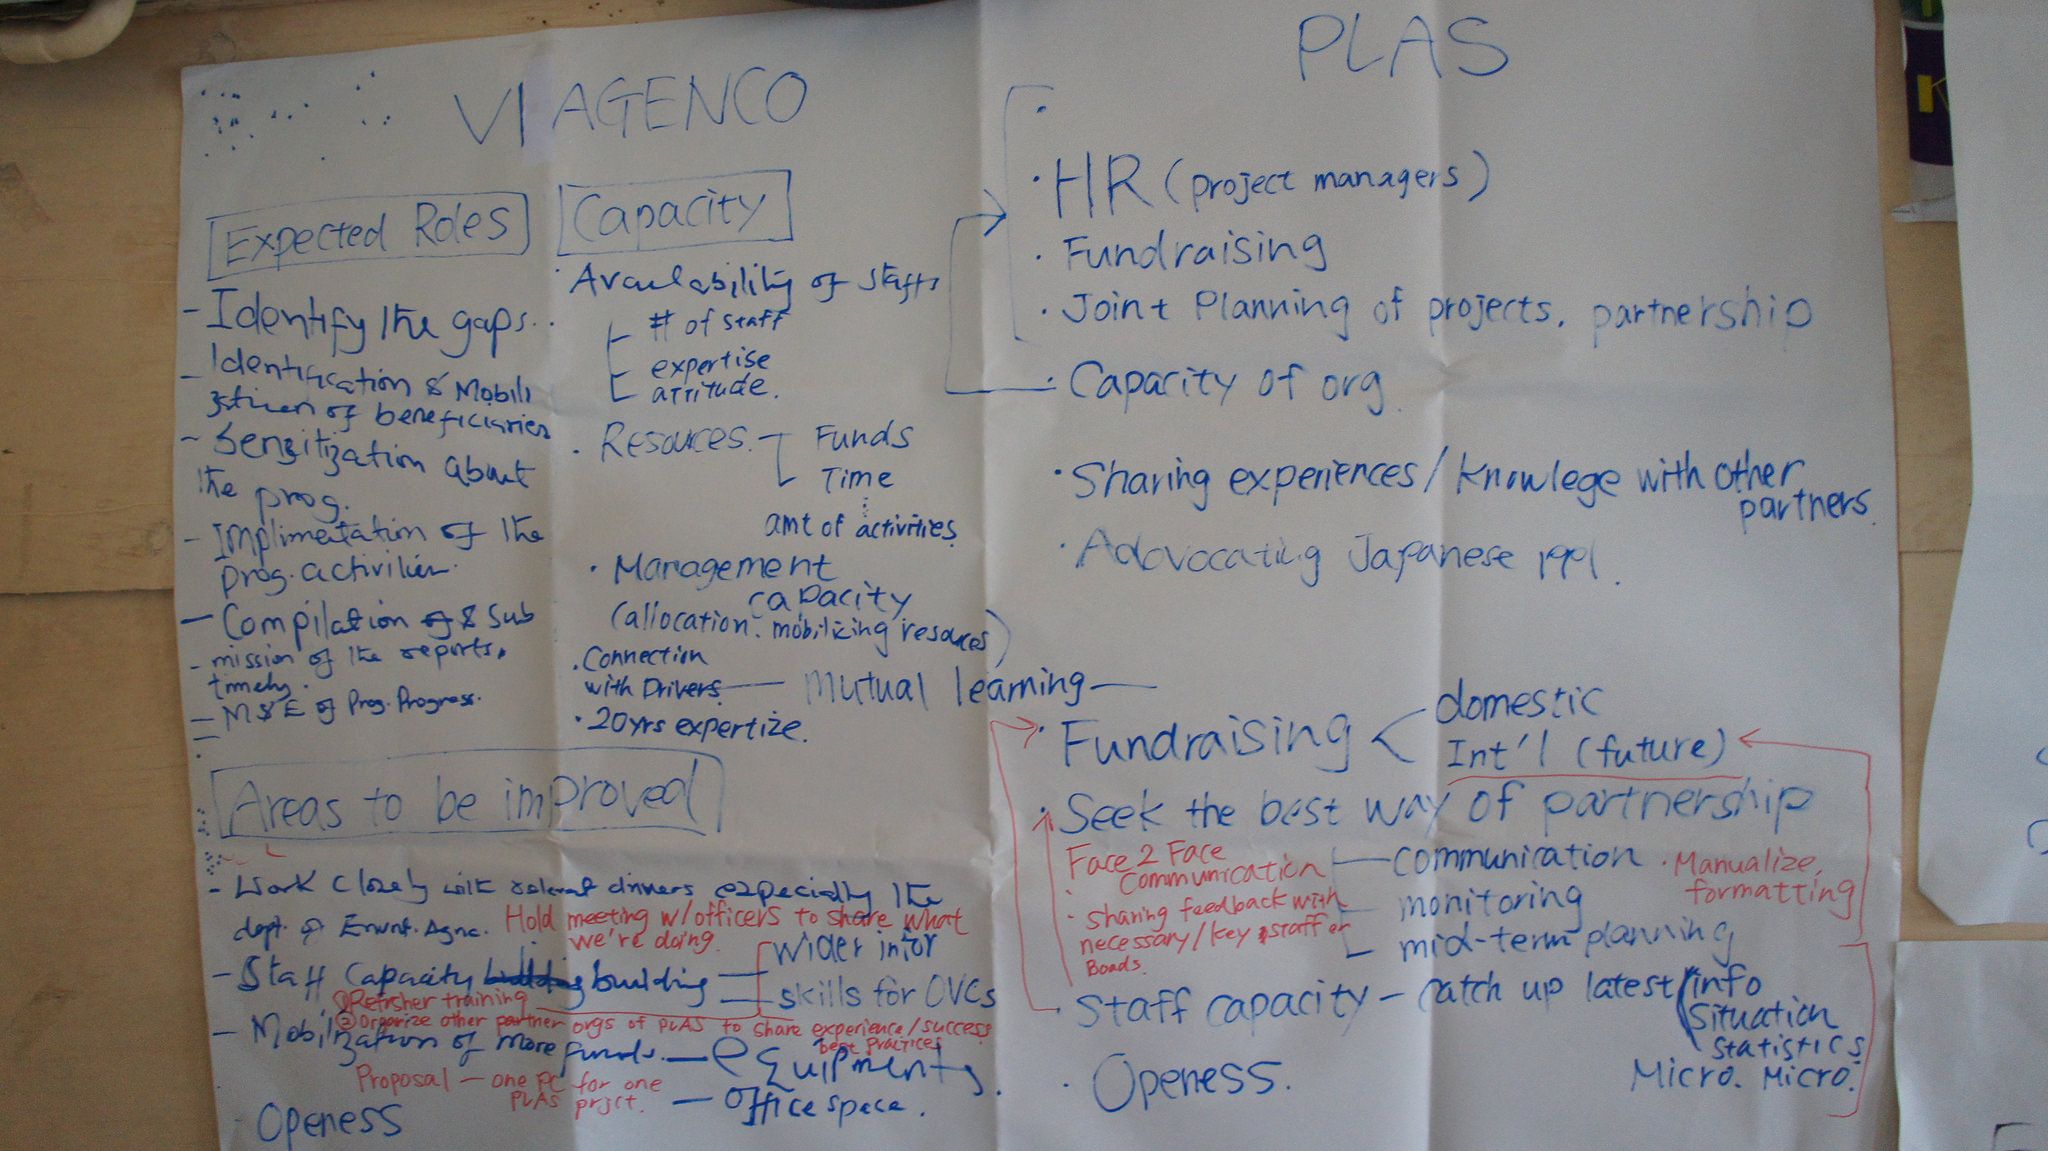 VI AGENCO
Expected Roles
- Identify the gaps.
- Identification & Mobili
zation of beneficiaries
- Sensitization about
the prog.
- Implimentation of the
prog. activities.
- Compilation of & Sub
- mission of the reports,
timely.
- M & E of Prog. Progress.
Capacity
· Availability of staffs
# of staff
expertise
attitude.
· Resources. Funds
Time
amt of activities
· Management
capacity
(allocation. mobilizing resources)
· Connection
with Drivers — Mutual learning —
· 20yrs expertize.
Areas to be improved
- Work closely with relevant dinners especially the
dept. of Envnt. Agric. Hold meeting w/officers to share what
we're doing.
- Staff capacity building building
wider infor
skills for OVCs
① Refrsher training
② Organize other partner orgs of PLAS to share experience/success
best practices
- Mobilization of more funds. — eQuipments.
— Office space.
Proposal — one PC for one
PLAS prjct.
· Openess
PLAS
· HR (project managers)
· Fundraising
· Joint Planning of projects, partnership
· Capacity of org.
· Sharing experiences/knowlege with other
partners.
· Adovocating Japanese ppl.
· Fundraising < domestic
Int'l (future)
· Seek the best way of partnership
Face 2 Face
communication
· sharing feedback with
necessary/key staff or
Boads.
communication
monitoring
mid-term planning
· Manualize,
formatting
· Staff capacity - catch up latest info
situation
statistics
Micro. Micro.
· Openess.